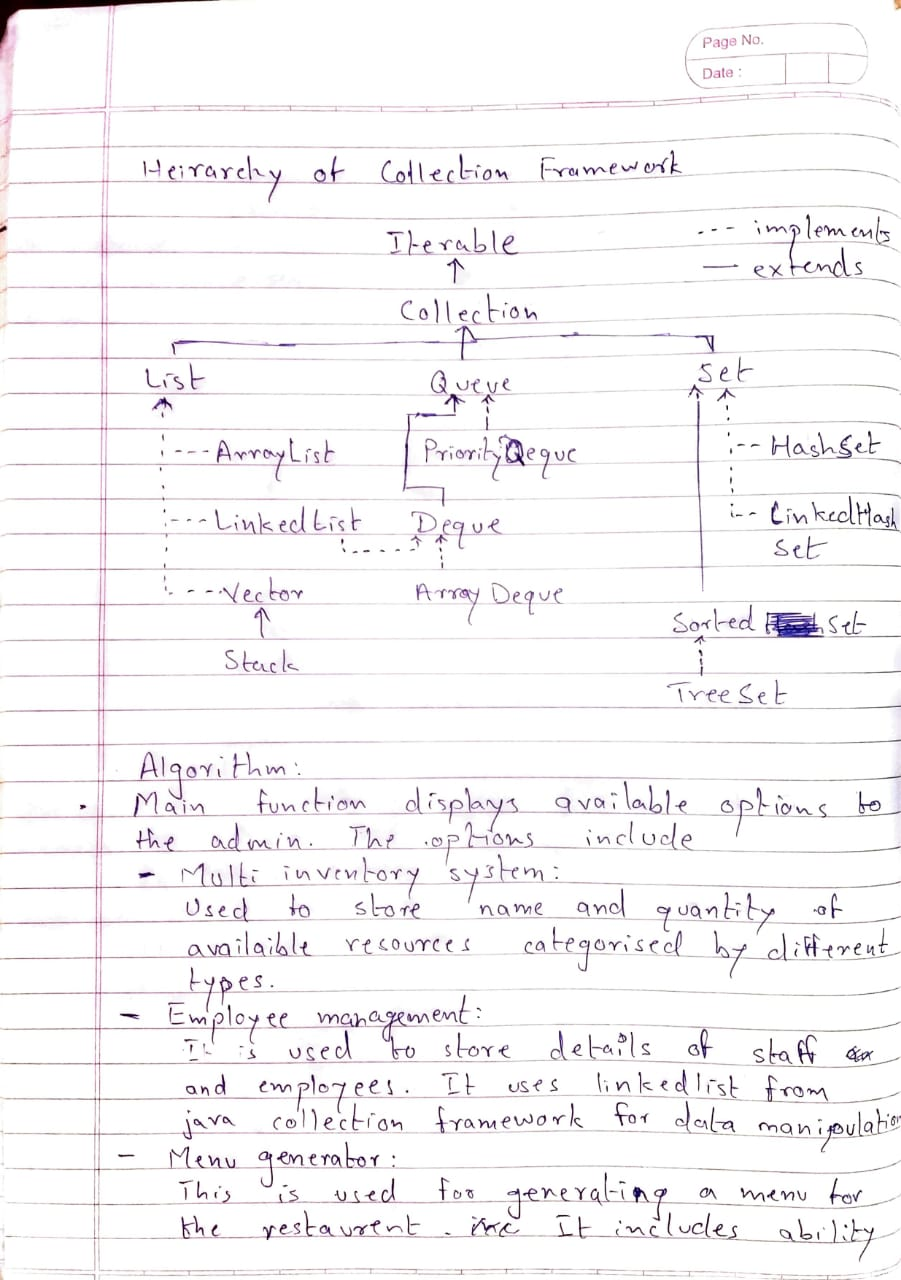 Page No.
Date :
Heirarchy of Collection Framework
Iterable
--- implements
— extends
Collection
List Queue Set
ArrayList PriorityQeque HashSet
LinkedList Deque LinkedHash
Set
Vector Array Deque
Sorted Set
Stack
TreeSet
Algorithm:
. Main function displays available options to
the admin. The options include
- Multi inventory system:
Used to store name and quantity of
availaible resources categorised by different
types.
- Employee management:
It is used to store details of staff
and employees. It uses linkedlist from
java collection framework for data manipulation
- Menu generator:
This is used for generating a menu for
the restaurent. It includes ability